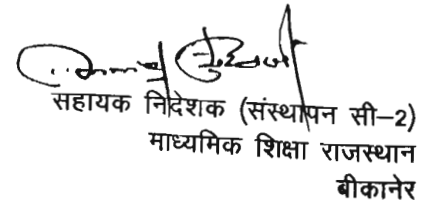 सहायक निदेशक (संस्थापन सी–2)
माध्यमिक शिक्षा राजस्थान
बीकानेर